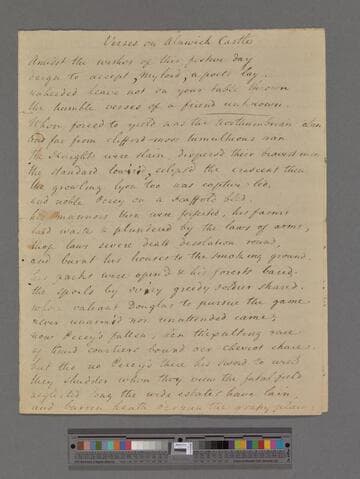 Verses on Alnwick Castle
Amidst the wishes of this festive day
deign to accept, my lord, a poet's lay.
unheeded leave not on your table thrown
the humble verses of a friend unknown.
Whom forced to yield was the Northumbrian
and far from Clifford's tumultuous ran
the Knights were slain, dispersed their bravest men
the standard lowered, eclipsed the crescent then
the growling lyon too was captive led,
and noble Percy on a scaffold bled.
his manours then were forfeited, his farms
laid waste & plundered by the laws of arms,
those laws severe dealt desolation round,
and burnt his houses to the smoking ground.
his parks were open'd & his forests bared
the spoils by every greedy soldier shared.
when valiant Douglas to pursue the game
never unarm'd nor unattended came;
now Percy's fallen, ven the
of timid courtiers bound oer cheviot chace.
but tho no Percy's there his sword to wield
they shudder when they view the fatal field
neglected long the wide estates have lain,
and barren heath oerran the